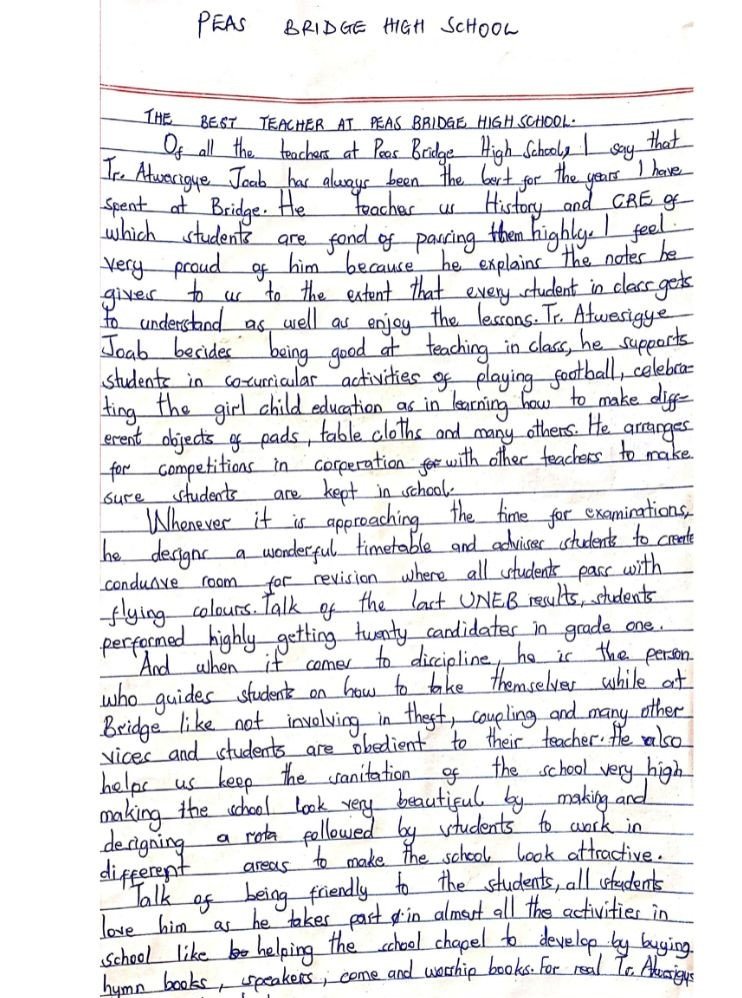 PEAS BRIDGE HIGH SCHOOL
THE BEST TEACHER AT PEAS BRIDGE HIGH SCHOOL.
Of all the teachers at Peas Bridge High School, I say that
Tr. Atwesigye Joab has always been the best for the years I have
spent at Bridge. He teaches us History and CRE of
which students are fond of passing them highly. I feel
very proud of him because he explains the notes he
gives to us to the extent that every student in class gets
to understand as well as enjoy the lessons. Tr. Atwesigye
Joab besides being good at teaching in class, he supports
students in co-curricular activities of playing football, celebra-
ting the girl child education as in learning how to make diff-
erent objects of pads, table cloths and many others. He arranges
for competitions in corperation for with other teachers to make
sure students are kept in school.
Whenever it is approaching the time for examinations,
he designs a wonderful timetable and advises students to create
conducive room for revision where all students pass with
flying colours. Talk of the last UNEB results, students
performed highly getting twenty candidates in grade one.
And when it comes to discipline, he is the person
who guides students on how to take themselves while at
Bridge like not involving in theft, coupling and many other
vices and students are obedient to their teacher. He also
helps us keep the sanitation of the school very high
making the school look very beautiful by making and
designing a rota followed by students to work in
different areas to make the school look attractive.
Talk of being friendly to the students, all students
love him as he takes part in almost all the activities in
school like helping the school chapel to develop by buying
hymn books, speakers, come and worship books. For real Tr. Atwesigye